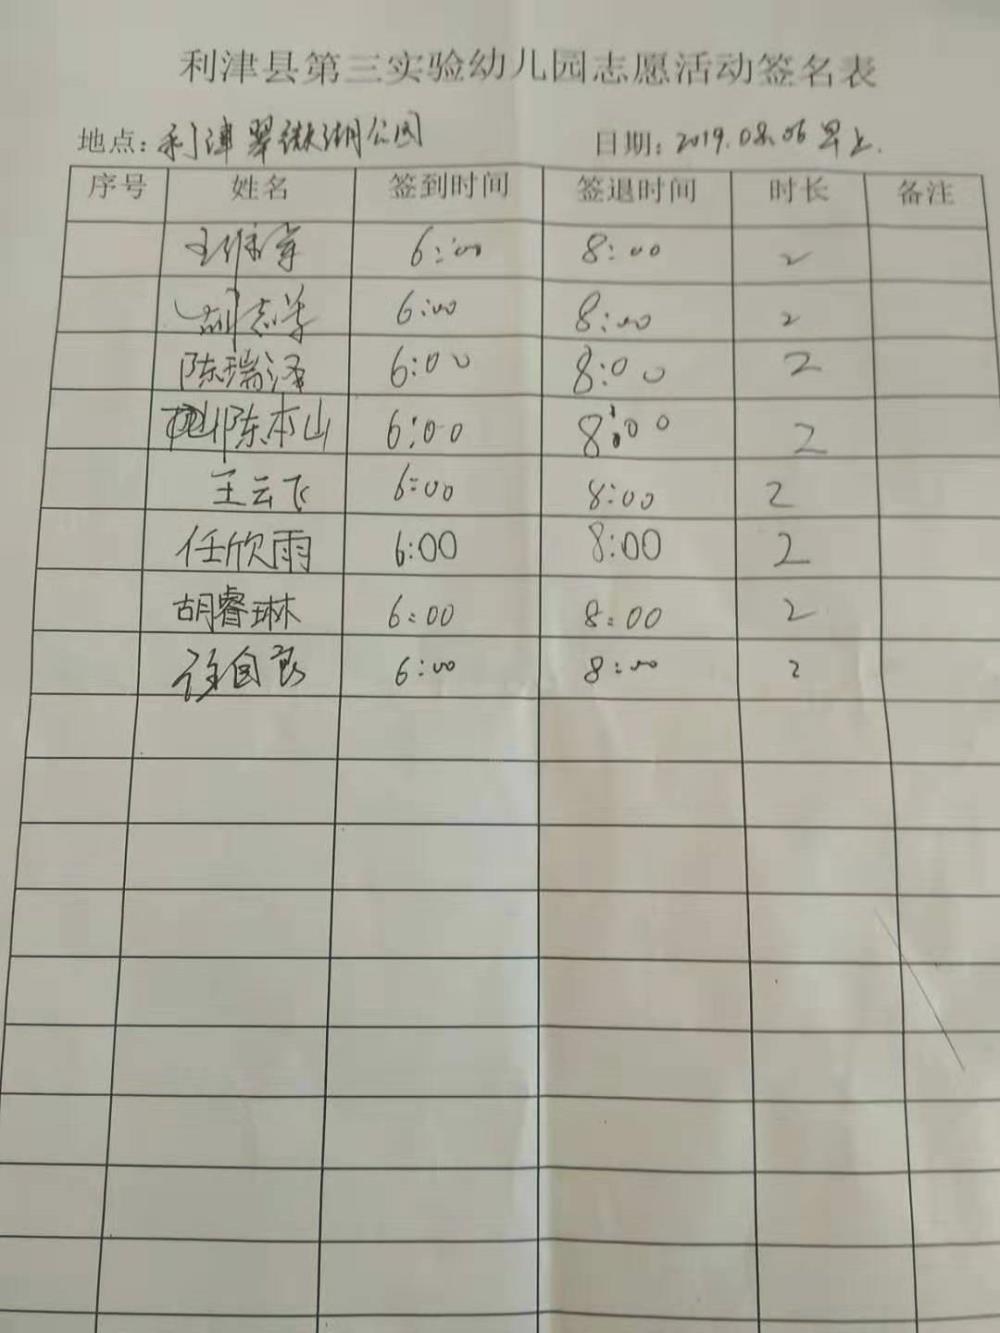 利津县第三实验幼儿园志愿活动签名表
地点：利津翠微湖公园 日期：2019.08.06 早上.
序号 姓名 签到时间 签退时间 时长 备注
6:00 8:00 2
胡志学 6:00 8:00 2
陈瑞泽 6:00 8:00 2
陈本山 6:00 8:00 2
王云飞 6:00 8:00 2
任欣雨 6:00 8:00 2
胡睿琳 6:00 8:00 2
徐自良 6:00 8:00 2